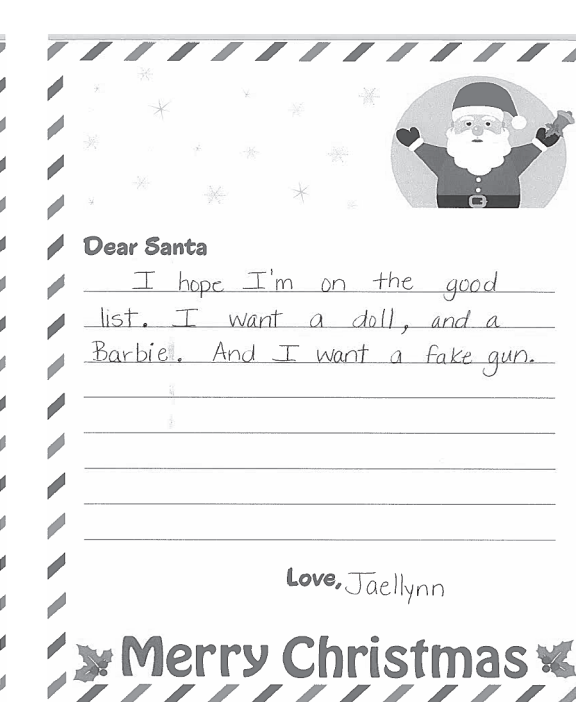 Dear Santa
I hope I'm on the good
list. I want a doll, and a
Barbie. And I want a fake gun.
Love, Jaellynn
Merry Christmas